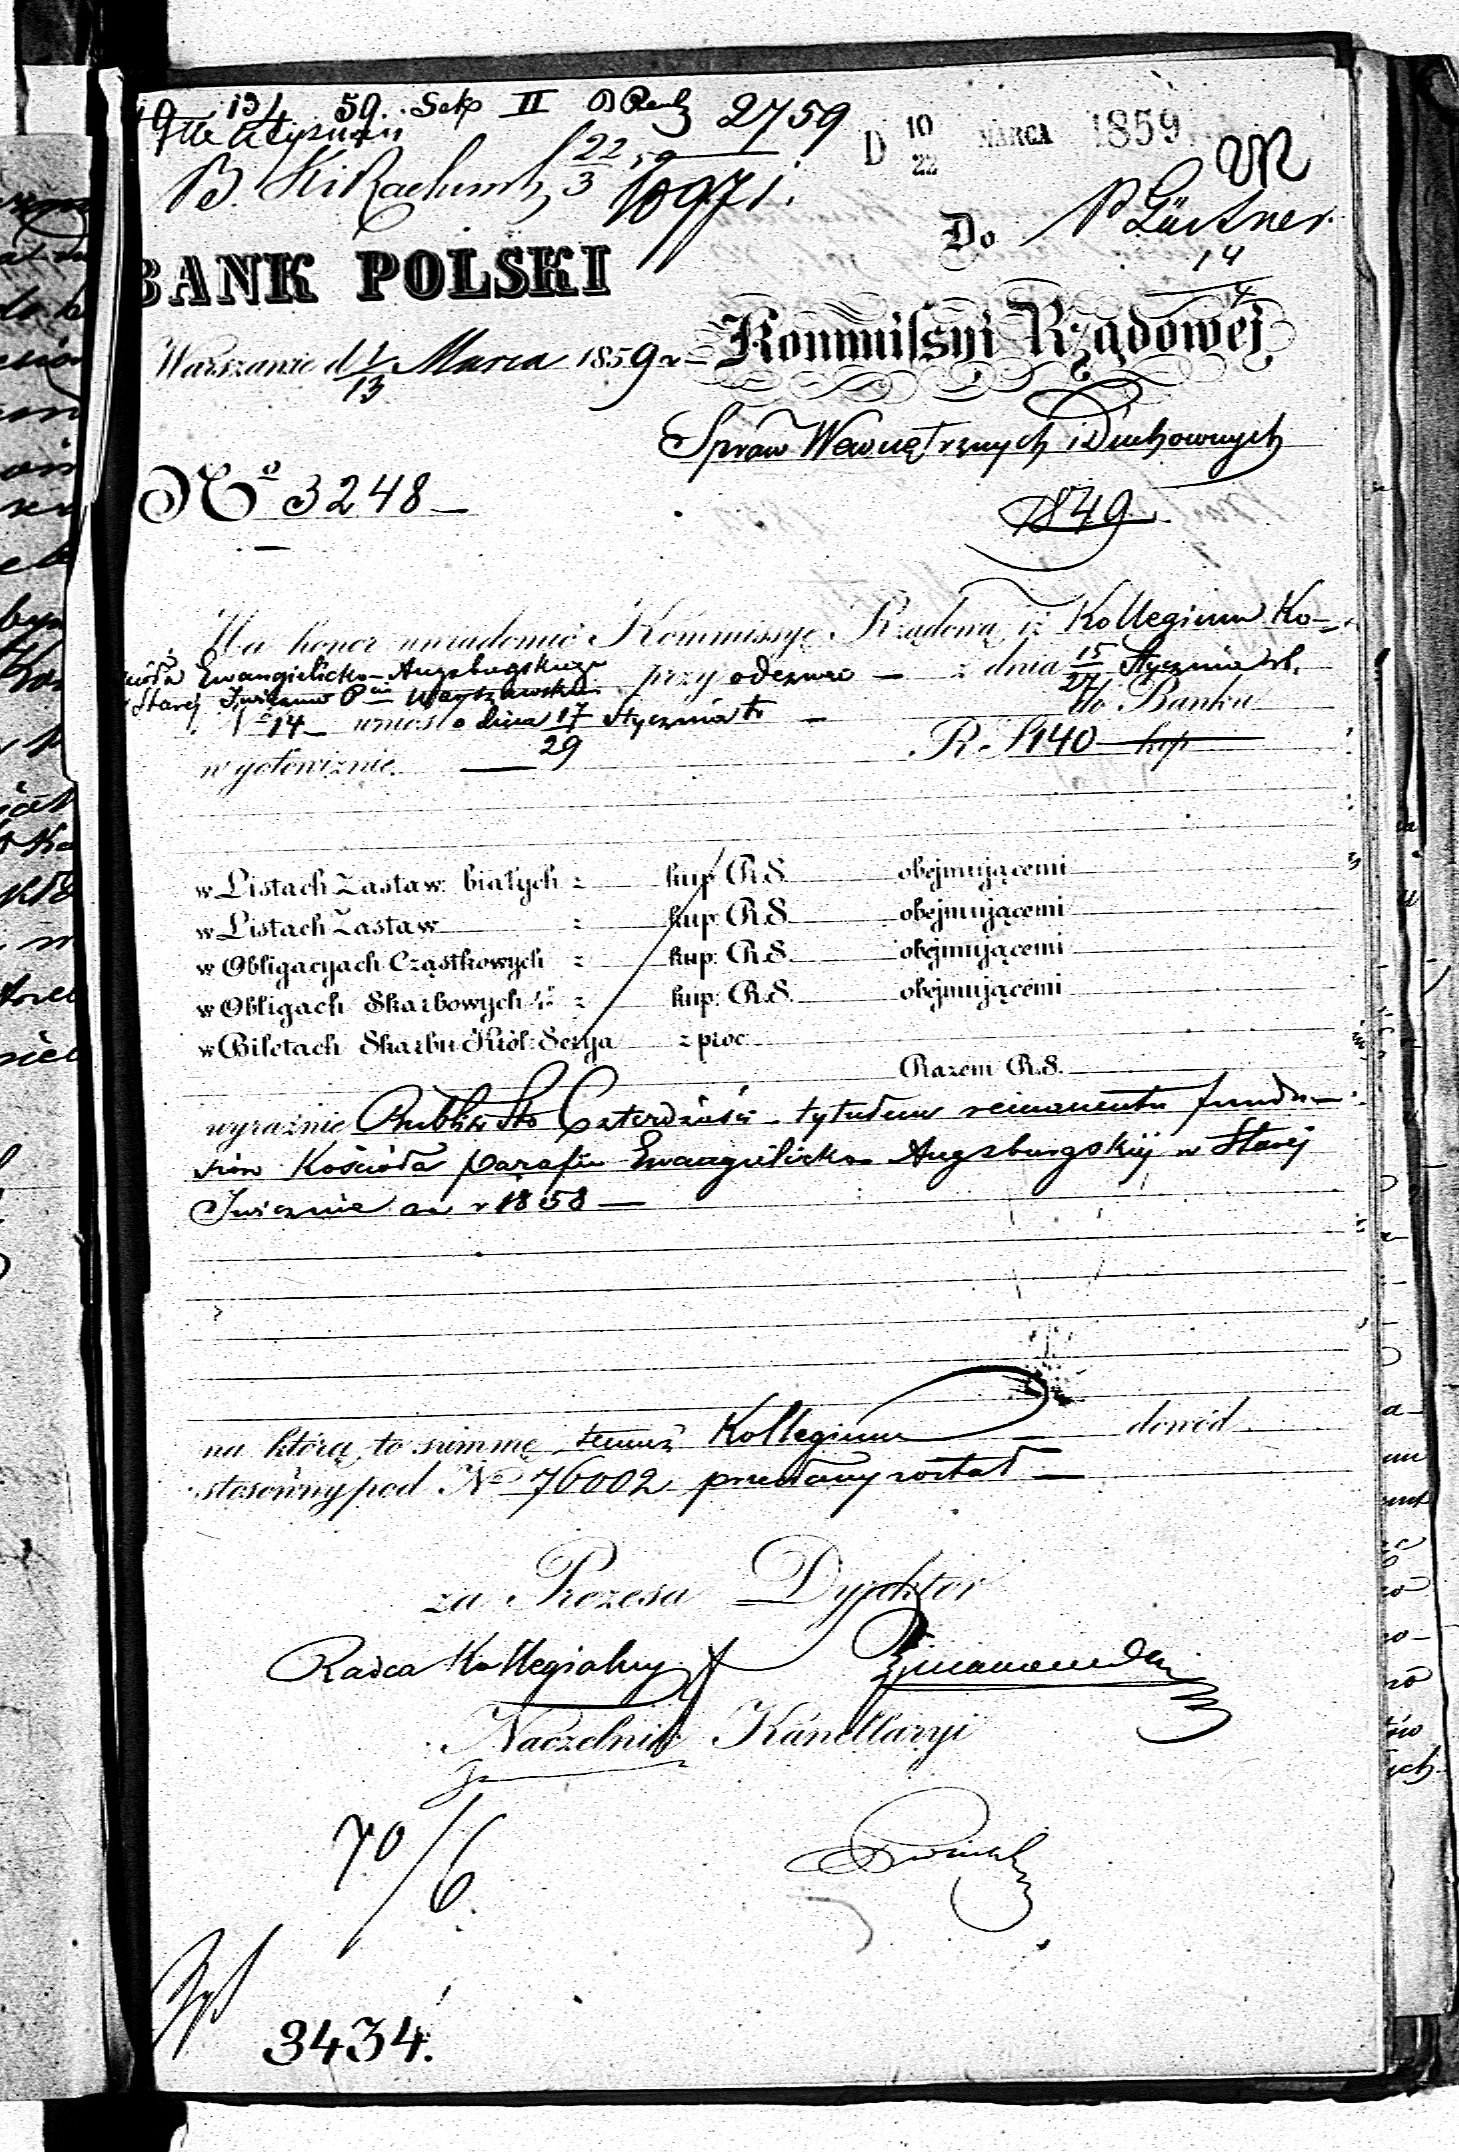 59. Sek II 2759
D 10/22 MARCA 1859
22/3 59 10971.
Do P Gürtner
14/4
BANK POLSKI
Kommissyi Rządowéj
Warszawie d 1/13 Marca 1859 r
Spraw Wewnętrznych i Duchownych
No 3248
1849
Ma honor uwiadomić Kommissyę Rządową iż Kollegium Ko-
ścioła Ewangielicko-Augsburgskiego
w Starej Iwicznie Ptu Warszawskim przy odezwie z dnia 15/27 Stycznia rb.
No 14 wniosło dnia 17/29 Stycznia tr do Banku
w gotowiznie R. S 140 kop
w Listach Zastaw. białych z kup R.S. obejmującemi
w Listach Zastaw z kup R.S. obejmującemi
w Obligacyach Cząstkowych z kup: R.S. obejmującemi
w Obligach Skarbowych z kup: R.S. obejmującemi
w Biletach Skarbu Król: Serya z proc
Razem R.S.
wyraźnie Rubli Sto Czterdzieści tytułem remanentu fundu-
szów Kościoła parafii Ewangielicko Augsburgskiéj w Starej
Iwicznie za r 1858
na którą to summę temuż Kollegium dowód
stosowny pod No 76002 przesłany został
za Prezesa Dyrektor
Radca Kollegialny
Naczelnik Kancellaryi
70/6
3434.